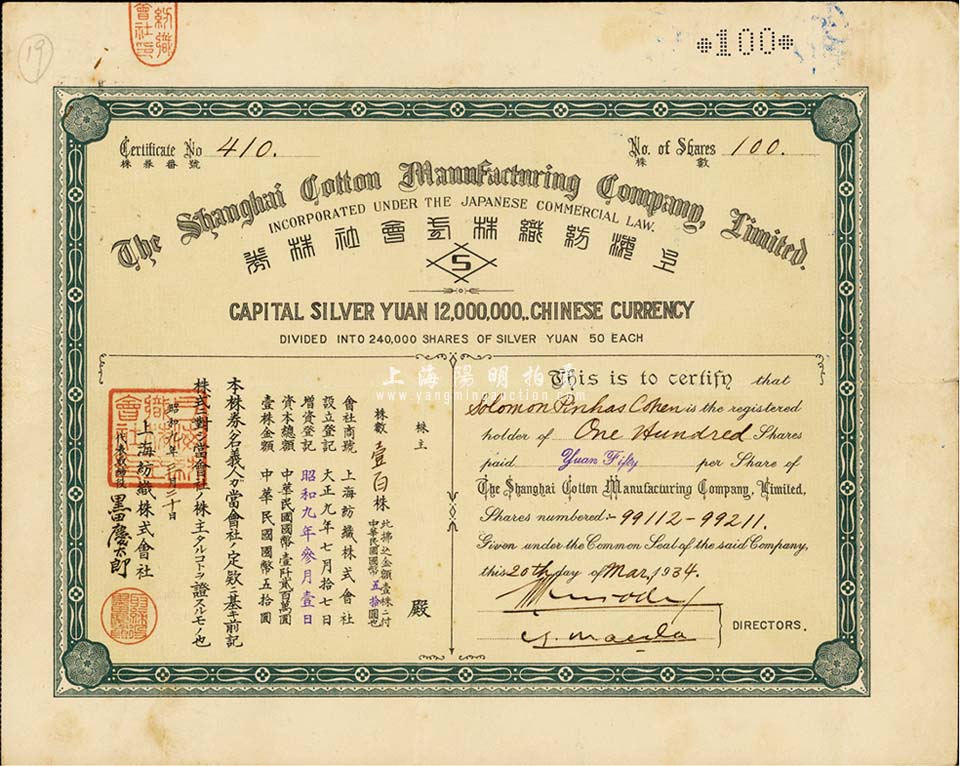 19
*100*
Certificate No 410.
株券番號
No. of Shares 100.
株數
The Shanghai Cotton Manufacturing Company, Limited.
INCORPORATED UNDER THE JAPANESE COMMERCIAL LAW.
上海紡織株式會社株券
S
CAPITAL SILVER YUAN 12,000,000,. CHINESE CURRENCY
DIVIDED INTO 240,000 SHARES OF SILVER YUAN 50 EACH
This is to certify that
Solomon Pinhas Cohen is the registered
holder of One Hundred Shares
paid Yuan Fifty per Share of
The Shanghai Cotton Manufacturing Company, Limited.
Shares numbered:- 99112-99211.
Given under the Common Seal of the said Company,
this 20th day of Mar, 1934.
DIRECTORS.
株主 殿
株數 壹百株 此拂込金額壹株ニ付
中華民國國幣五拾圓也
會社商號 上海紡織株式會社
設立登記 大正九年七月拾七日
增資登記 昭和九年參月壹日
資本總額 中華民國國幣壹阡貳百萬圓
壹株金額 中華民國國幣五拾圓
本株券名義人ハ當會社ノ定款ニ基キ前記
株式ニ對シ當會社ノ株主タルコトヲ證スルモノ也
昭和九年三月二十日
上海紡織株式會社
代表取締役 黒田慶太郎
上海陽明拍卖
www.yangmingauction.com